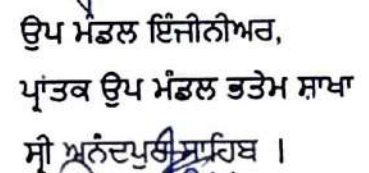 ਉਪ ਮੰਡਲ ਇੰਜੀਨੀਅਰ,
ਪ੍ਰਾਂਤਕ ਉਪ ਮੰਡਲ ਭਤੇਮ ਸ਼ਾਖਾ
ਸ੍ਰੀ ਅਨੰਦਪੁਰ ਸਾਹਿਬ ।